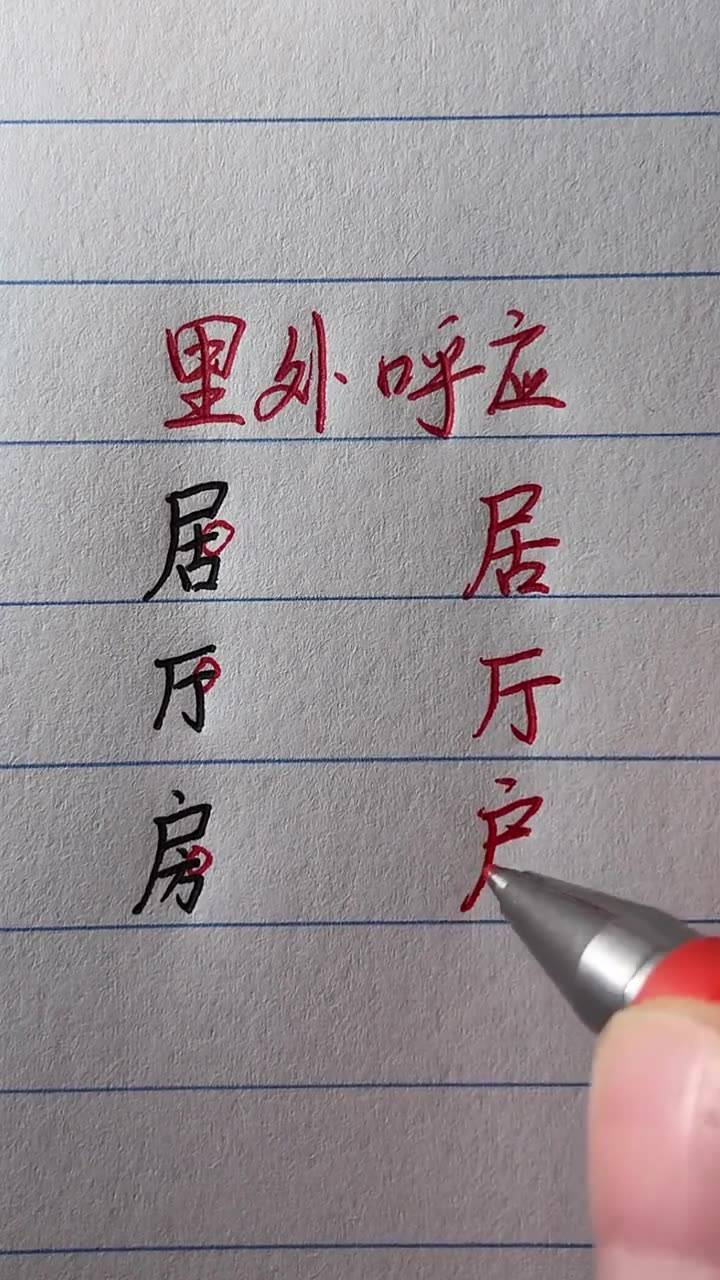 里外呼应
居 居
厅 厅
房 户